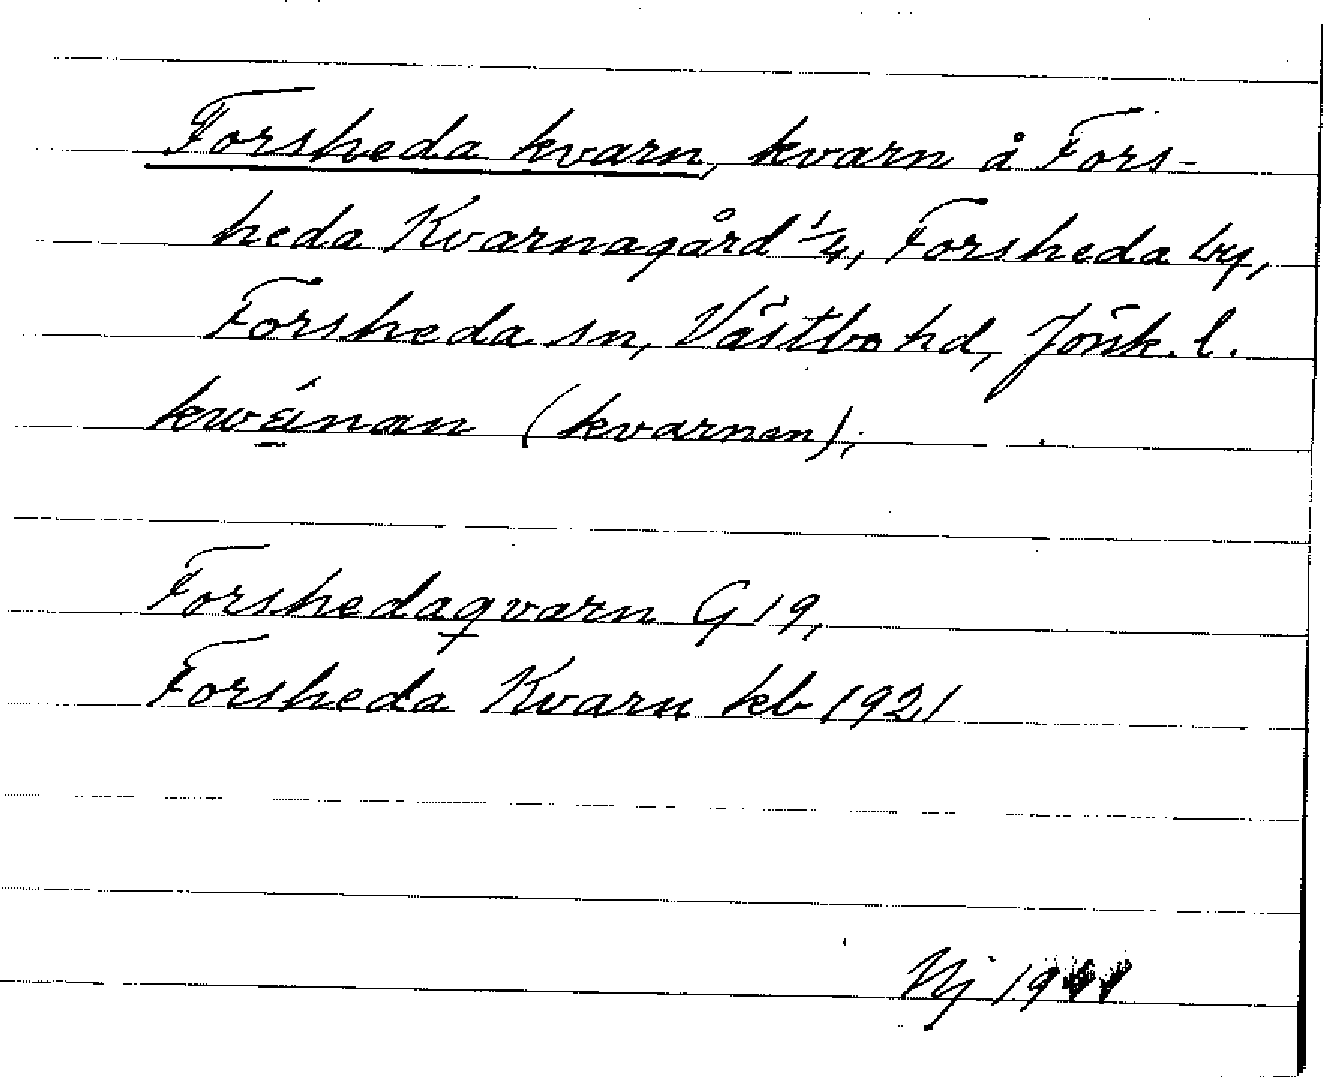 Forsheda kvarn, kvarn å Fors-
heda Kvarnagård 1/4, Forsheda by,
Forsheda sn, Västbo hd, Jönk. l.
(kvarnen);
Forshedaqvarn G 19,
Forsheda Kvarn kb 1921